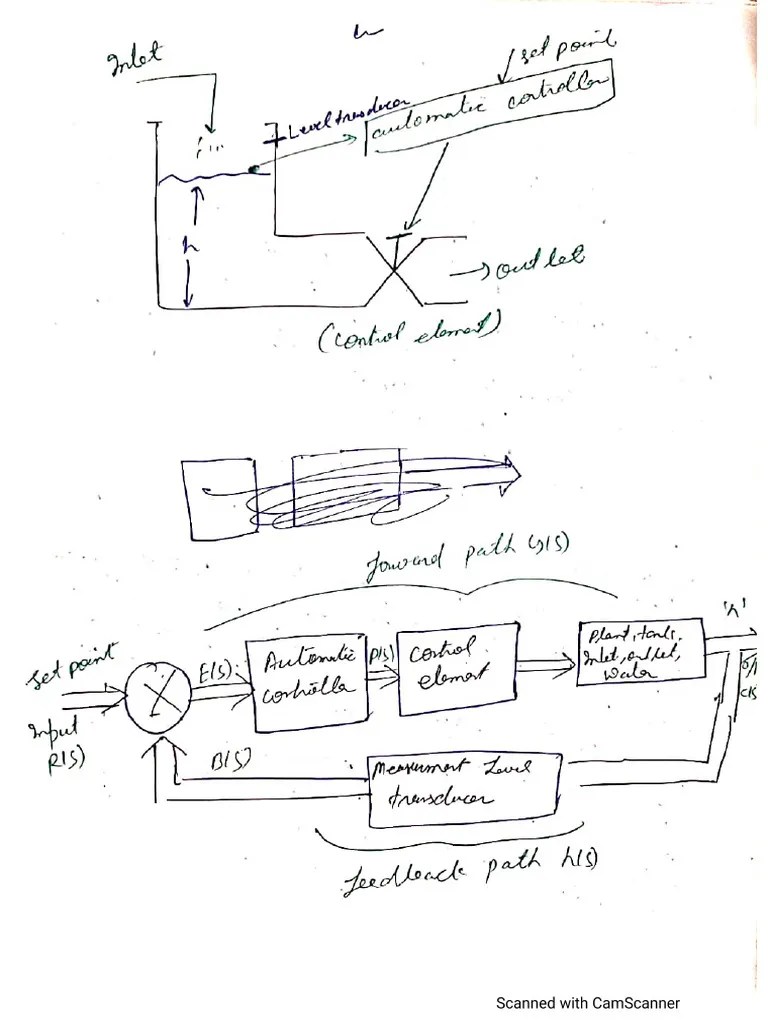 Inlet
set point
Level trasducer
automatic cotroller
h
outlet
(control element)
forward path G(s)
'h'
set point
E(s)
Automatic
controlla
P(s)
Cotrol
element
Plant, tank,
Inlet, outlet,
Water
Input
R(s)
B(s)
Measurment Level
trasducer
feedback path h(s)
Scanned with CamScanner